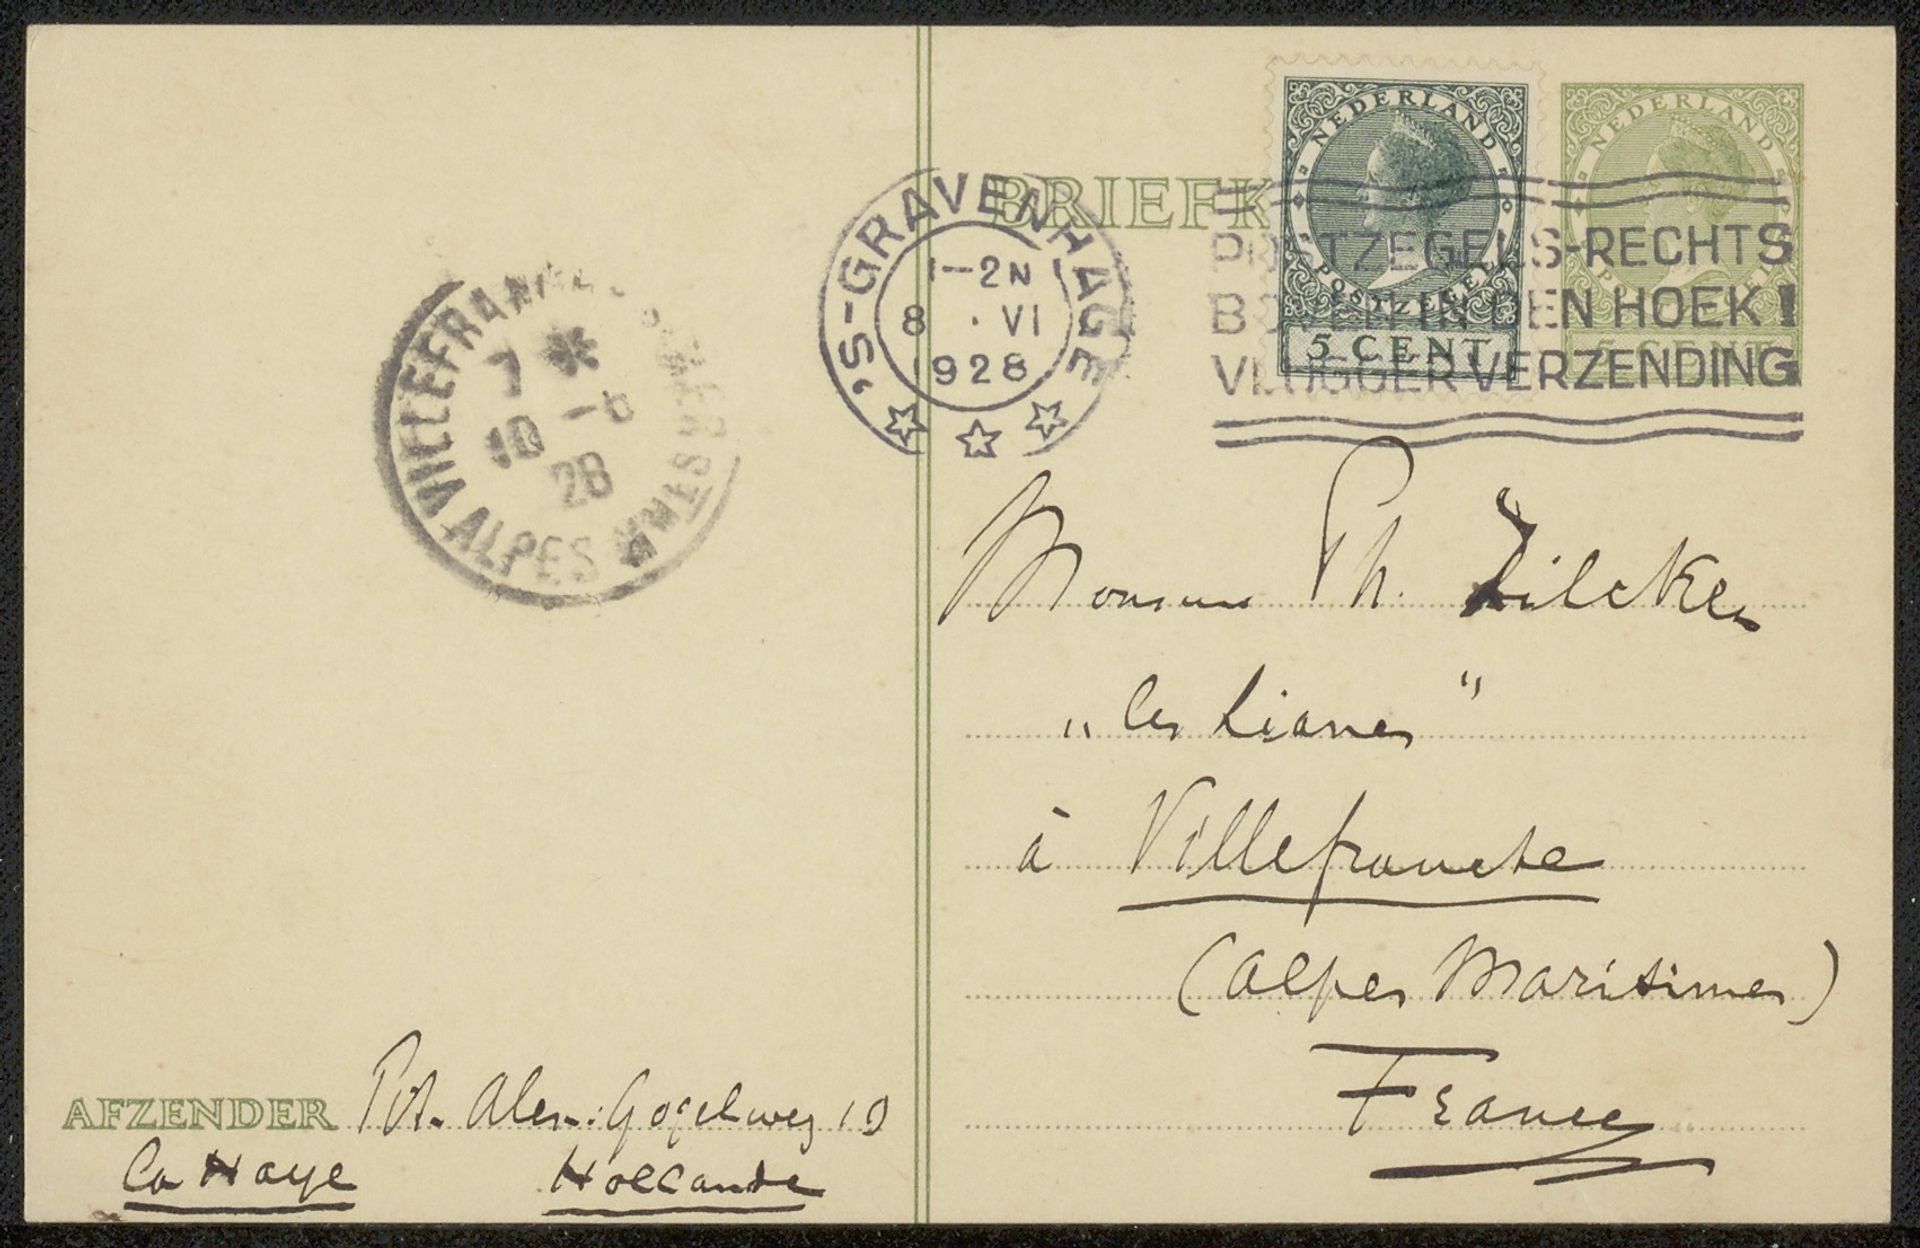 BRIEFK
NEDERLAND
POSTZEGEL
5 CENT
NEDERLAND
5 CENT
'S-GRAVENHAGE
1-2N
8 . VI
1928
POSTZEGELS-RECHTS
BOVEN IN DEN HOEK!
VLUGGER VERZENDING
VILLEFRANCHE S MER
7 *
10 -6
28
ALPES MMES
Monsieur Ph. Zilcken
"les Lianes"
à Villefranche
(Alpes Maritimes)
France
AFZENDER Alex: Gogelweg 19
La Haye Hollande